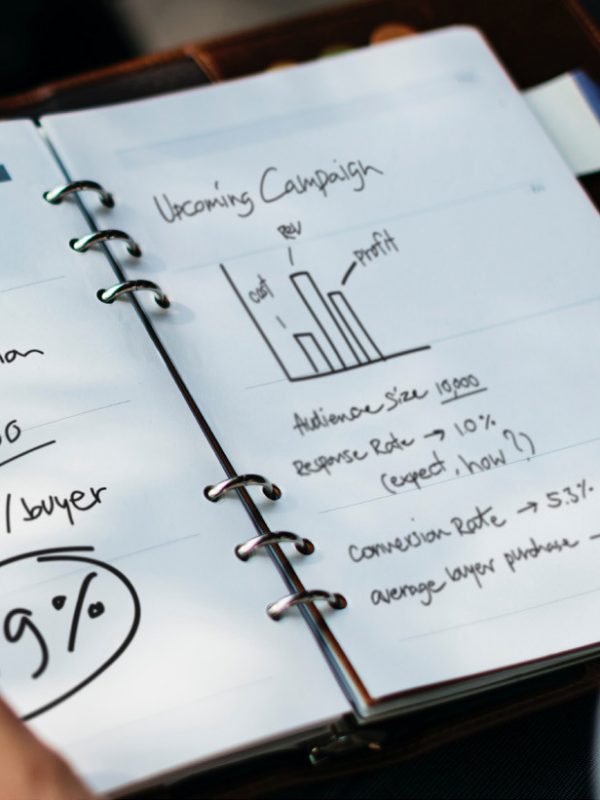 /buyer
9%
Upcoming Campaign
Rev
Profit
cost
Audience Size 10,000
Response Rate → 10%
(expect, how?)
Conversion Rate → 5.3%
average buyer purchase →